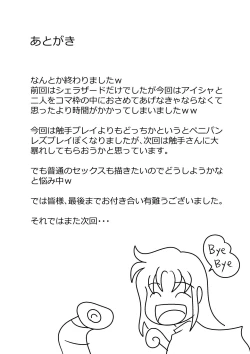 あとがき
なんとか終わりましたｗ
前回はシェラザードだけでしたが今回はアイシャと
二人をコマ枠の中におさめてあげなきゃならなくて
思ったより時間がかかってしまいましたｗｗ
今回は触手プレイよりもどっちかというとペニバン
レズプレイぽくなりましたが､次回は触手さんに大
暴れしてもらおうかと思っています。
でも普通のセックスも描きたいのでどうしようかな
と悩み中ｗ
では皆様､最後までお付き合い有難うございました。
それではまた次回･･･
Bye
Bye